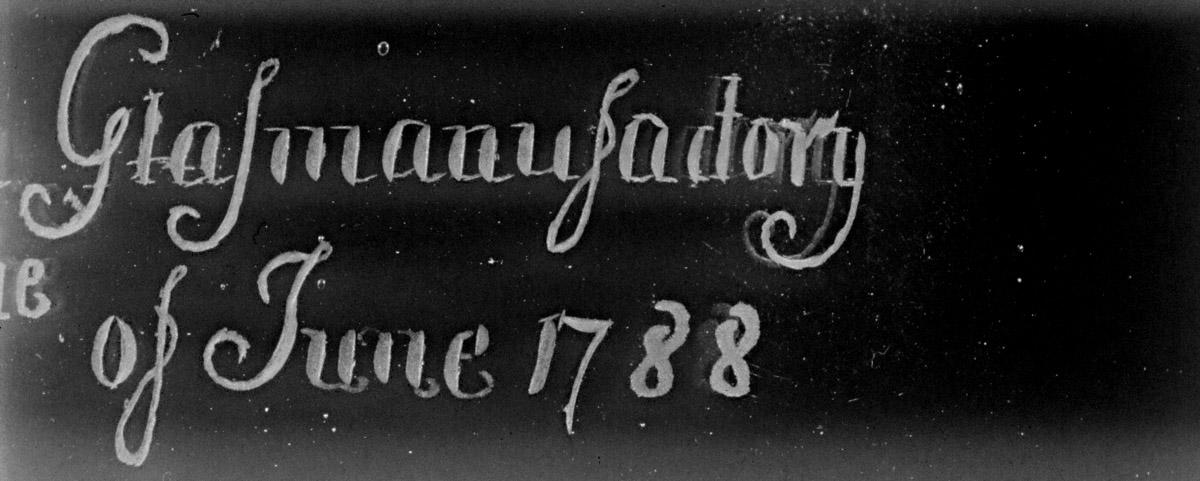 Glaſmanufactory
of June 1788